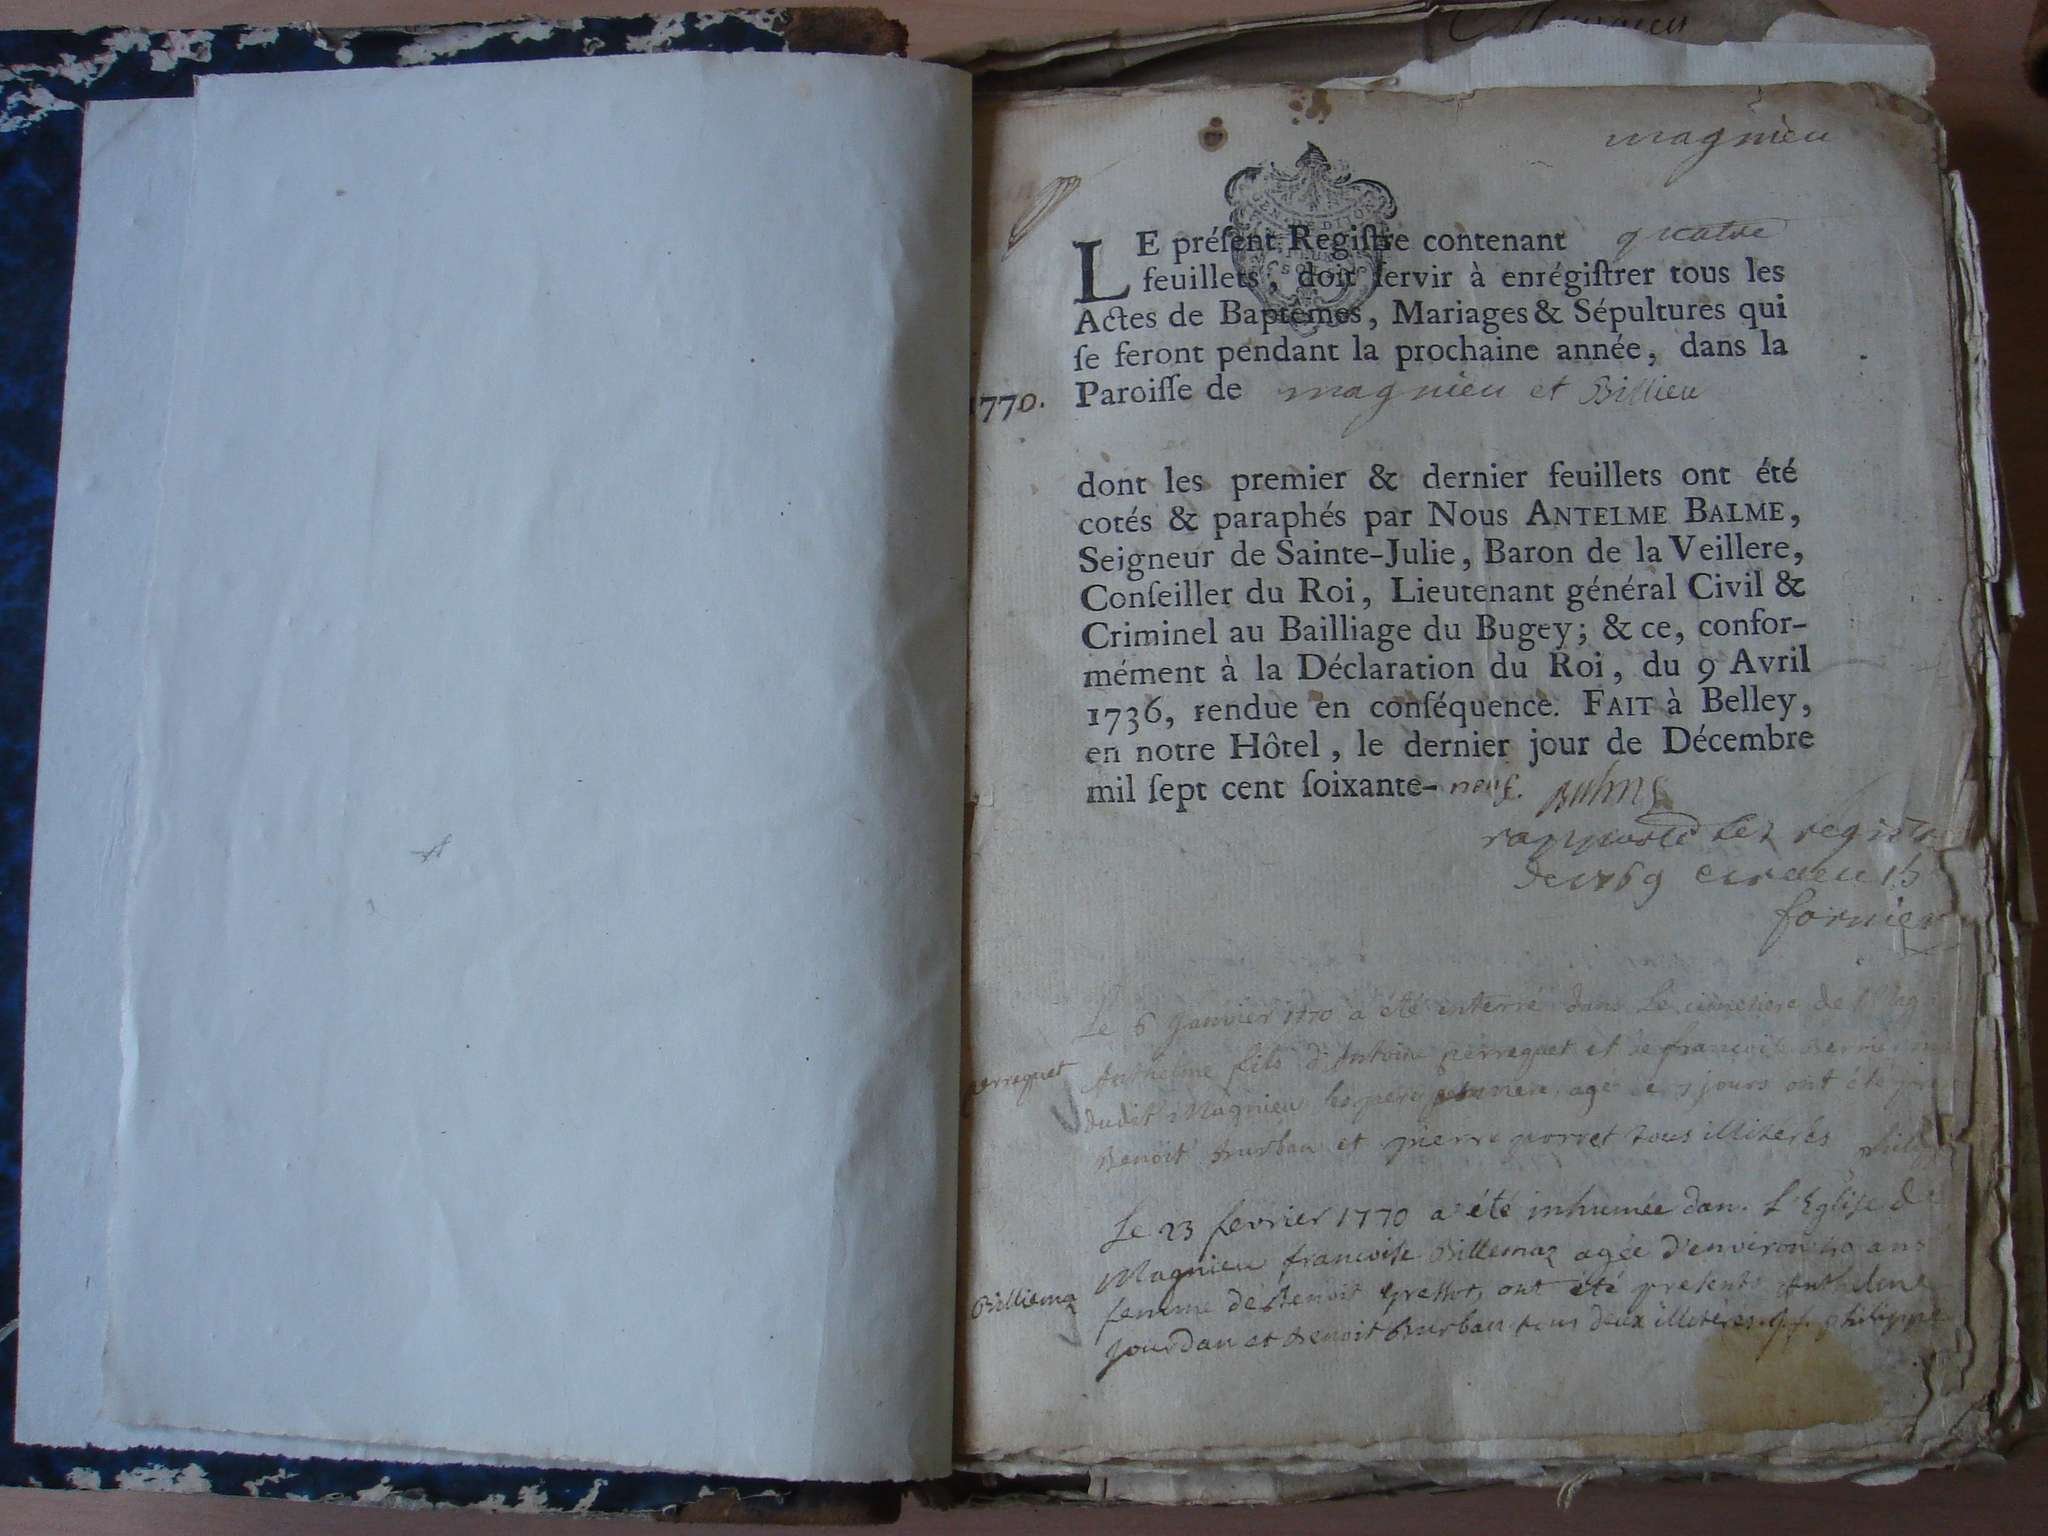 magnieu
LE préſent Regiſtre contenant quatre
feuillets, doit ſervir à enrégiſtrer tous les
Actes de Baptêmes, Mariages & Sépultures qui
ſe feront pendant la prochaine année, dans la
1770. Paroiſſe de magnieu et Billieu
dont les premier & dernier feuillets ont été
cotés & paraphés par Nous ANTELME BALME,
Seigneur de Sainte-Julie, Baron de la Veillere,
Conſeiller du Roi, Lieutenant général Civil &
Criminel au Bailliage du Bugey; & ce, confor-
mément à la Déclaration du Roi, du 9 Avril
1736, rendue en conſéquence. FAIT à Belley,
en notre Hôtel, le dernier jour de Décembre
mil ſept cent ſoixante-neuf.
rapporté les regist
de 1769
fornier
Le 6 Janvier 1770 a été enterré dans Le cimetiere de Mag
perreguet Anthelme fils d'Antoine perreguet et de françoise
dudit Magnieu les pere mere, agé de jours ont été pre
Benoit Burban et pierre porret tous illiterés
Le 23 fevrier 1770 a été inhumée dan. L'Eglise de
Magnieu francoise Billemaz agée d'environ ans
Billiemaz femme de Benoit ont été presents Anthelme
Jourdan et Benoit Burban tous deux illiterés philippe